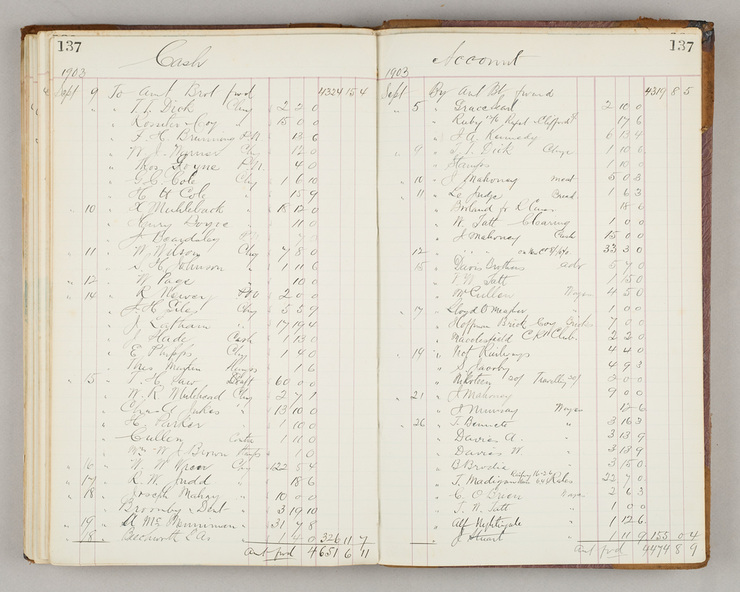 137
Cash
1903
Sept 9 To Amt Brot fwd 4324 15 4
" T. L. Dick Chq 2 2 0
" Rossiter Coy " 15 0 0
" F. H. Brunning P.N 13 6
" W. J. Chq 12 0
" P.N 4 0
" G. C. Cole Chq 1 6 10
" H H Cole " 15 9
" 10 " A Muhleback " 18 12 0
" Henry " 11 0
" J Beardsley
" 11 " W. Wilson Chq 7 8 0
" S. H. Johnson " 1 11 6
" 12 " W Page " 10 0
" 14 " R 2 0 0
" J. H. Giles Chq 5 5 9
" J. Latham " 17 19 4
" Hade Cash 1 13 0
" E Phipps Chq 1 4 0
" Mrs Stamps 1 6
" 15 " T. H. Draft 60 0 0
" W. R. Chq 2 7 1
" Chas A Jukes " 13 10 0
" H. Parker " 1 10 0
" Cullen 1 10 0
" Wm W. J. Brown Stamps 1 0
" 16 " W. W. Chq 122 5 4
" 17 " R. W. Judd " 18 6
" 18 " Joseph Mahay " 10 0 0
" Bromby & Dent " 3 19 10
" 19 " A Mc " 31 7 8
" 18 " Beckworth " 1 4 0 326 11 7
Amt fwd 4651 6 11
137
Account
1903
Sept By Amt Bt forward 4319 8 5
" 5 " 2 10 0
" Ruby 17 6
" J A Kennedy 6 13 4
" 9 " T. L. Dick Chqe 1 10 6
" Stamps 10 0
" 10 " J Mahoney meat 5 0 3
" 11 " Lo Judge Bread 1 6 3
" 18 6
" W. Tatt Clearing 1 0 0
" J Mahoney Cash 15 0 0
12 " " " 33 3 0
" 15 " Davis Brothers adv 5 7 0
" T. W. Tatt 1 15 0
" McCullen Wages 4 5 0
" 17 " Lloyd O " 1 0 0
" Hoffman Brick Coy 7 0 0
" Macclesfield Club 2 2 0
" 19 " Vict Railways 4 4 0
" S. Jacoby 4 9 3
" 2 0 0
" 21 " J Mahoney 9 0 0
" J Murray Wages 12 6
" 26 " T. Bennett " 3 16 3
" Davies A. " 3 13 9
" Davies W. " 3 13 9
" B Brodie " 3 15 0
" T. Madigan 22 7 0
" C. O'Brien Wages 2 6 3
" T. W. Tatt " 1 0 0
" Alf Nightingale " 1 12 6
" J Stuart " 1 11 9 155 0 4
Amt fwd 4474 8 9